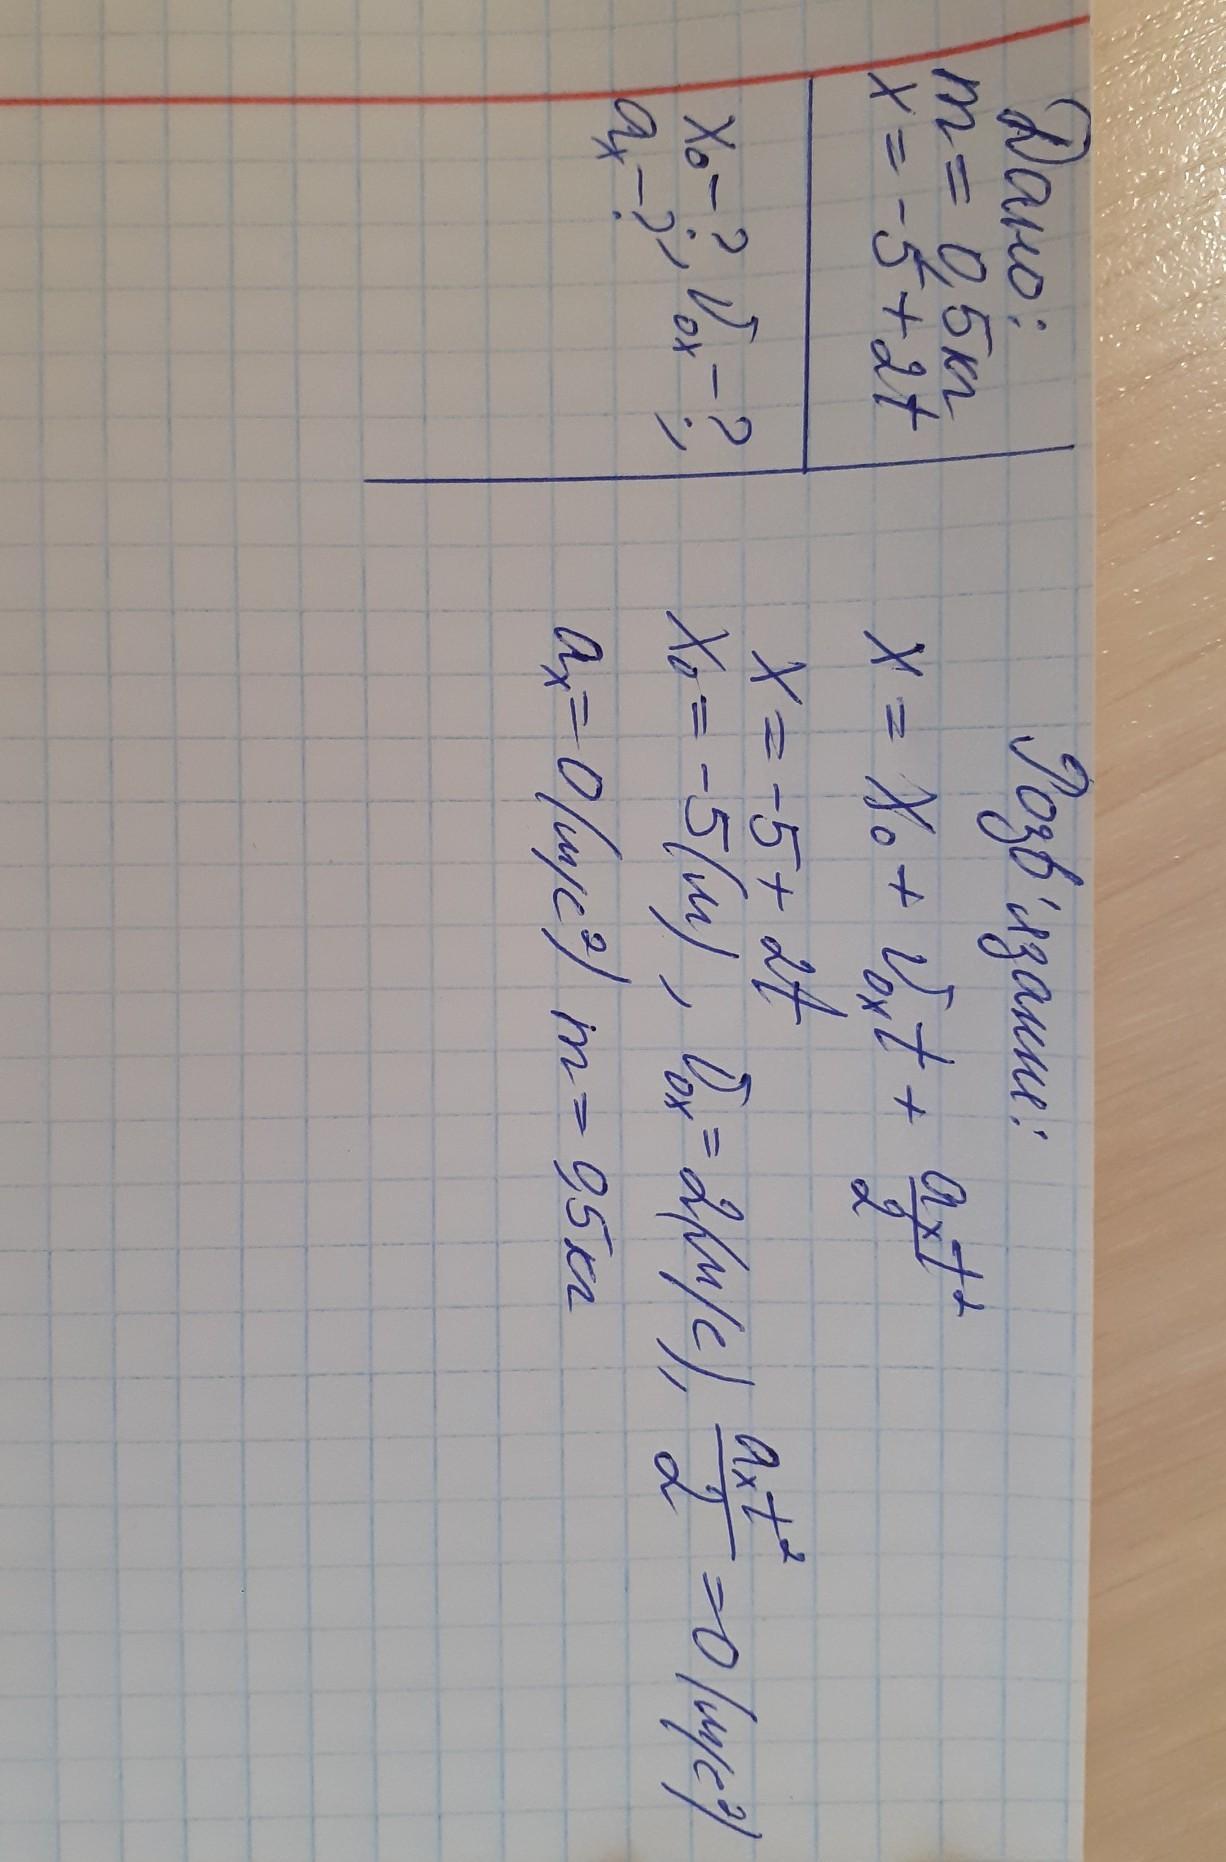 Дано:
m = 0,5кг
x = -5+2t
x₀-?, υ₀ₓ-?,
aₓ-?
Розв'язання:
x = x₀ + υ₀ₓt + aₓt²/2
x = -5+ 2t
x₀ = -5(м), υ₀ₓ = 2(м/с), aₓt²/2 = 0(м/с²)
aₓ = 0(м/с²) m = 0,5кг